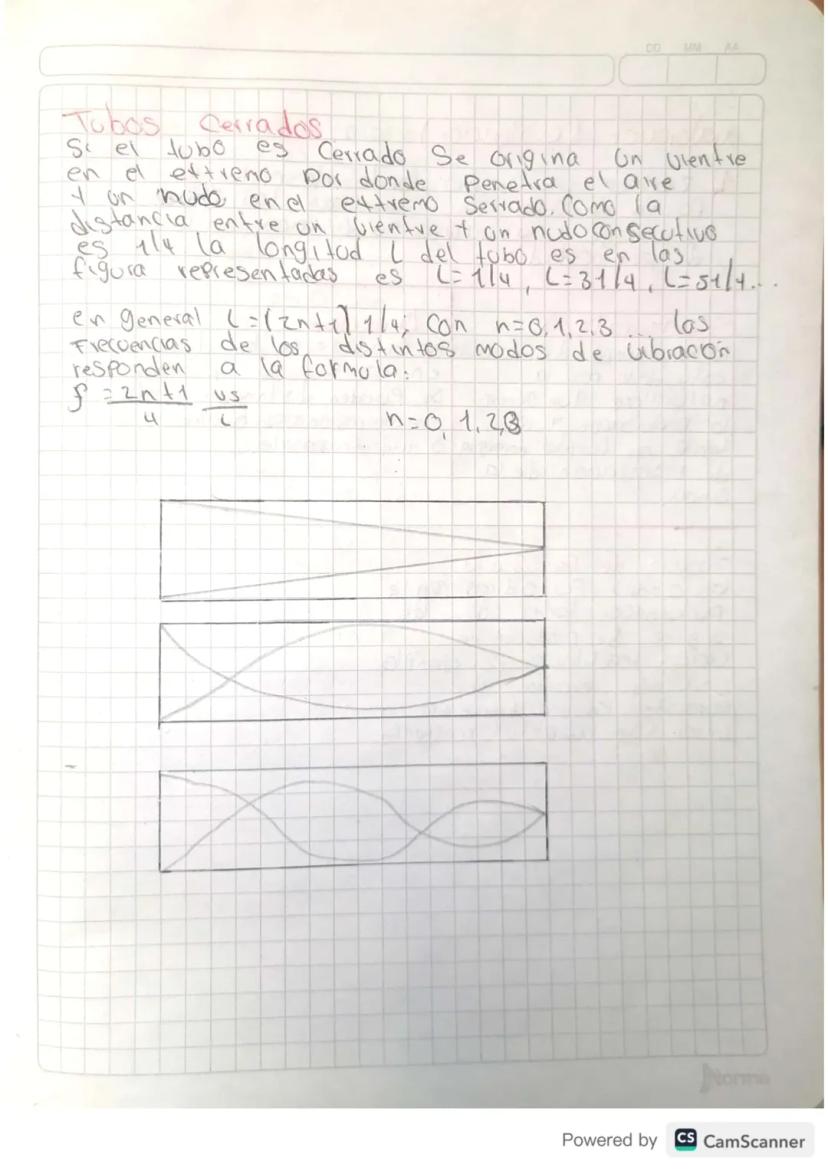 DD MM AA
Tubos Cerrados
Si el tubo es Cerrado Se origina un vientre
en el extreno por donde Penetra el aire
y un nudo en el extremo Serrado. Como la
distancia entre un vientre y un nudo consecutivo
es 1/4 la longitud L del tubo es en las
figura representadas es L=1/4, L=31/4, L=51/4...
en general L=(2n+1) 1/4; con n=0,1,2,3... las
Frecuencias de los distintos modos de vibración
responden a la formula:
f = 2n+1/4 vs/L n=0, 1, 2, 3
Norma
Powered by CS CamScanner